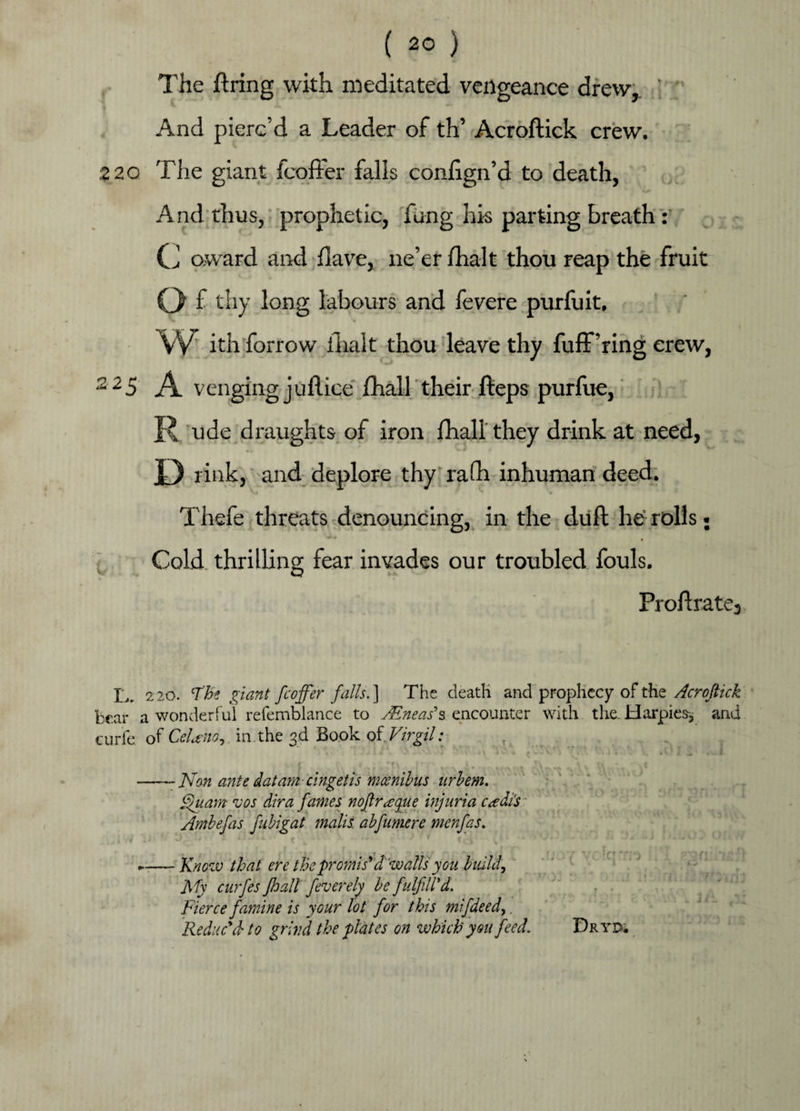 ( 20 )
The ſtring with meditated vengeance drew,
And pierc'd a Leader of th' Acroſtick crew.
220 The giant ſcoffer falls conſign'd to death,
And thus, prophetic, ſung his parting breath:
C oward and ſlave, ne'er ſhalt thou reap the fruit
O f thy long labours and ſevere purſuit,
W ith ſorrow ſhalt thou leave thy ſuff'ring crew,
225 A venging juſtice ſhall their ſteps purſue,
R ude draughts of iron ſhall they drink at need,
D rink, and deplore thy raſh inhuman deed.
Theſe threats denouncing, in the duſt he rolls:
Cold thrilling fear invades our troubled ſouls.
Proſtrate,
L. 220. The giant ſcoffer falls.] The death and prophecy of the Acroſtick
bear a wonderful reſemblance to Æneas's encounter with the Harpies, and
curſe of Celæno, in the 3d Book of Virgil:
—— Non ante datam cingetis mœnibus urbem.
Quam vos dira fames noſtræque injuria cædis
Ambeſas ſubigat malis abſumere menſas.
—— Know that ere the promis'd walls you build,
My curſes ſhall ſeverely be fulfill'd.
Fierce famine is your lot for this miſdeed,
Reduc'd to grind the plates on which you feed. DRYD.